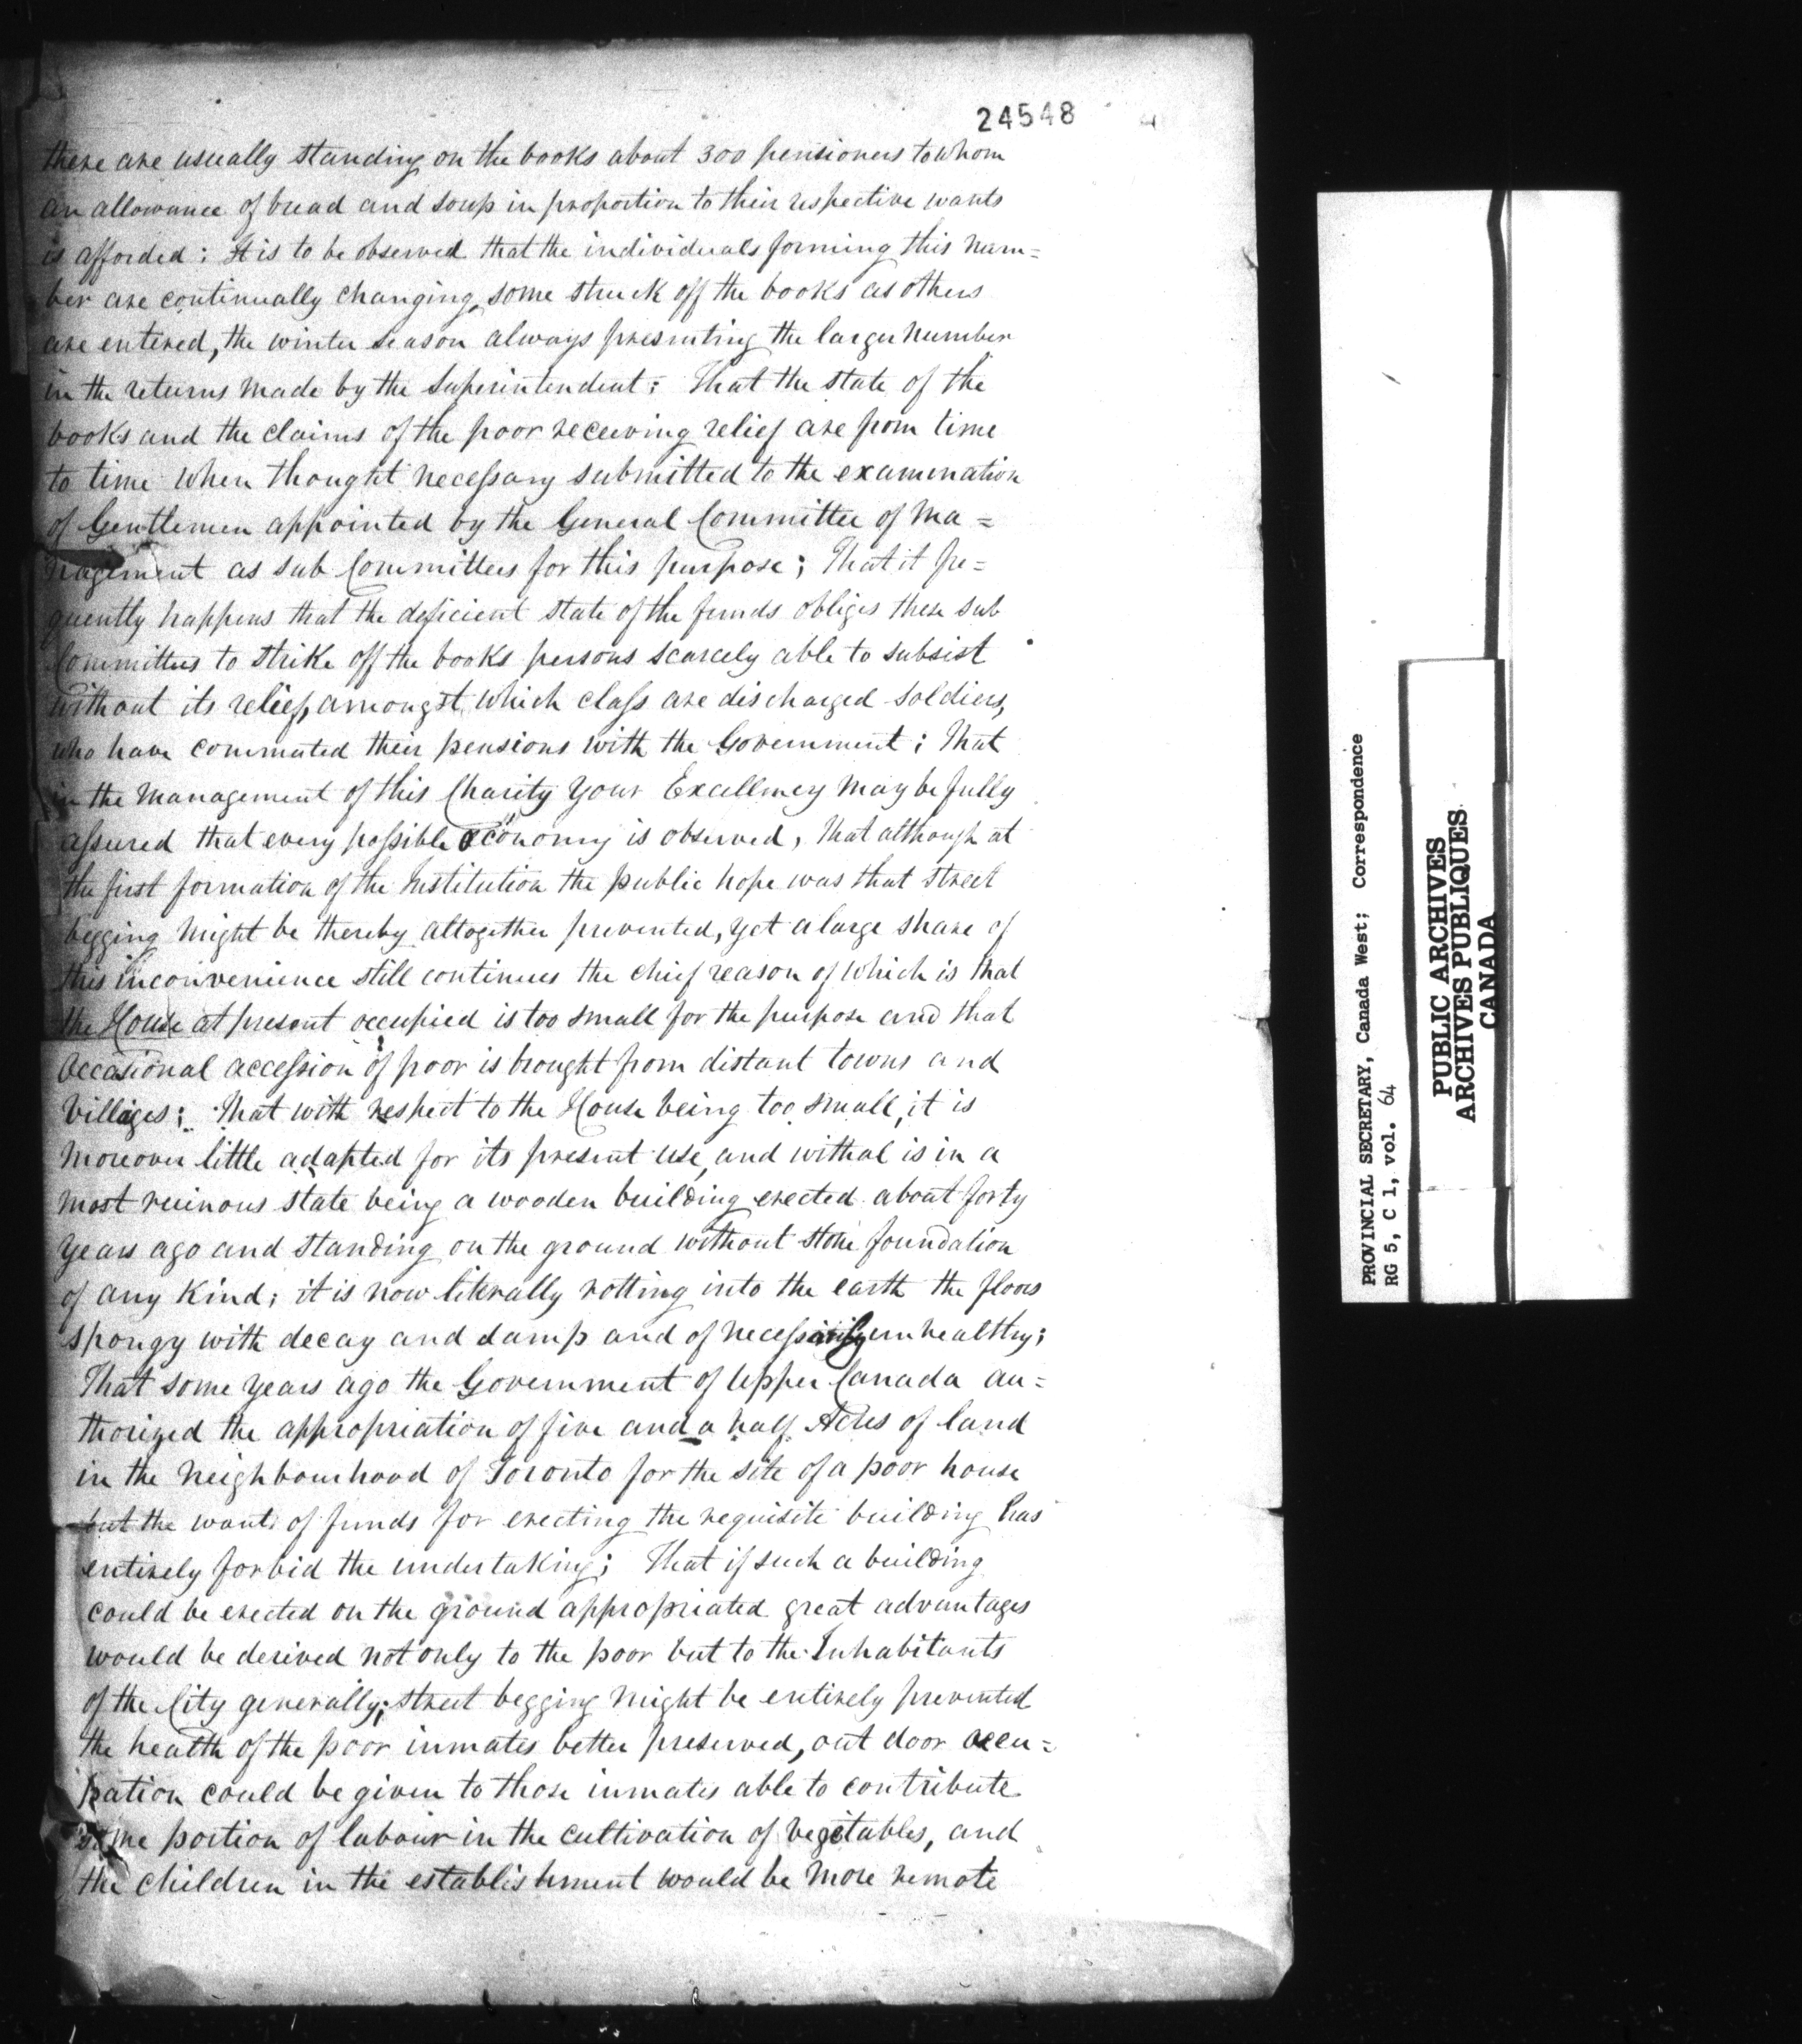 24548
there are usually standing on the books about 300 pensioners to whom
an allowance of bread and soup in proportion to their respective wants
is afforded: It is to be observed that the individuals forming this num=
ber are continually changing, some struck off the books as others
are entered, the winter season always presenting the larger number
in the returns made by the Superintendent: That the state of the
books and the claims of the poor receiving relief are from time
to time when thought necessary submitted to the examination
of Gentlemen appointed by the General Committee of Ma=
nagement as sub Committees for this purpose; That it fre=
quently happens that the deficient state of the funds obliges these sub
Committees to strike off the books persons scarcely able to subsist
without its relief, amongst which class are discharged soldiers,
who have commuted their pensions with the Government; That
in the management of this Charity Your Excellency may be fully
assured that every possible œconomy is observed, That although at
the first formation of the Institution the public hope was that street
begging might be thereby altogether prevented, yet a large share of
this inconvenience still continues the chief reason of which is that
the House at present occupied is too small for the purpose and that
occasional accession of poor is brought from distant towns and
Villages; That with respect to the House being too small, it is
moreover little adapted for its present use, and withal is in a
most ruinous state being a wooden building erected about forty
years ago and standing on the ground without stone foundation
of any kind; it is now literally rotting into the earth the floors
spongy with decay and damp and of necessity unhealthy;
That some years ago the Government of Upper Canada au=
thorized the appropriation of five and a half Acres of land
in the neighbourhood of Toronto for the site of a poor house
but the want of funds for erecting the requisite building has
entirely forbid the undertaking; That if such a building
could be erected on the ground appropriated great advantages
would be derived not only to the poor but to the Inhabitants
of the City generally; street begging might be entirely prevented
the health of the poor inmates better preserved, out door occu=
pation could be given to those inmates able to contribute
some portion of labour in the cultivation of vegetables, and
the children in the establishment would be more remote
PROVINCIAL SECRETARY, Canada West; Correspondence
RG 5, C 1, vol. 64
PUBLIC ARCHIVES
ARCHIVES PUBLIQUES
CANADA